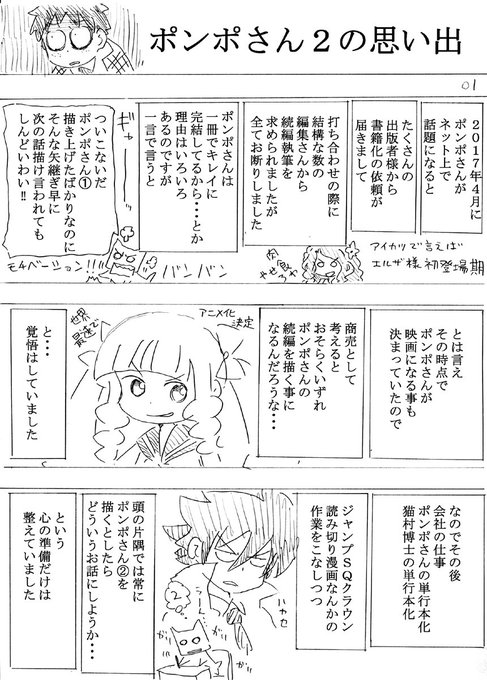 ポンポさん2の思い出
01
2017年4月に
ポンポさんが
ネット上で
話題になると
たくさんの
出版者様から
書籍化の依頼が
届きまして
打ち合わせの際に
結構な数の
編集さんから
続編執筆を
求められましたが
全てお断りしました
アイカツで言えば
エルザ様初登場期
肉
やせ食
ろか
ポンポさんは
一冊でキレイに
完結してるから・・・とか
理由はいろいろ
あるのですが
一言で言うと
ギャー
ついこないだ
ポンポさん①
描き上げたばかりなのに
そんな矢継ぎ早に
次の話描け言われても
しんどいわい!!
モチベーション!!!
バンバン
とは言え
その時点で
ポンポさんが
映画になる事も
決まっていたので
商売として
考えると
おそらくいずれ
続編を描く事に
なるんだろうな・・・
アニメ化
決定
世界
最速で
と・・・
覚悟はしていました
なのでその後
会社の仕事
ポンポさんの単行本化
猫村博士の単行本化
ジャンプSQクラウン
読み切り漫画なんかの
作業をこなしつつ
頭の片隅では常に
ポンポさん②を
描くとしたら
どういうお話にしようか・・・
という
心の準備だけは
整えていました